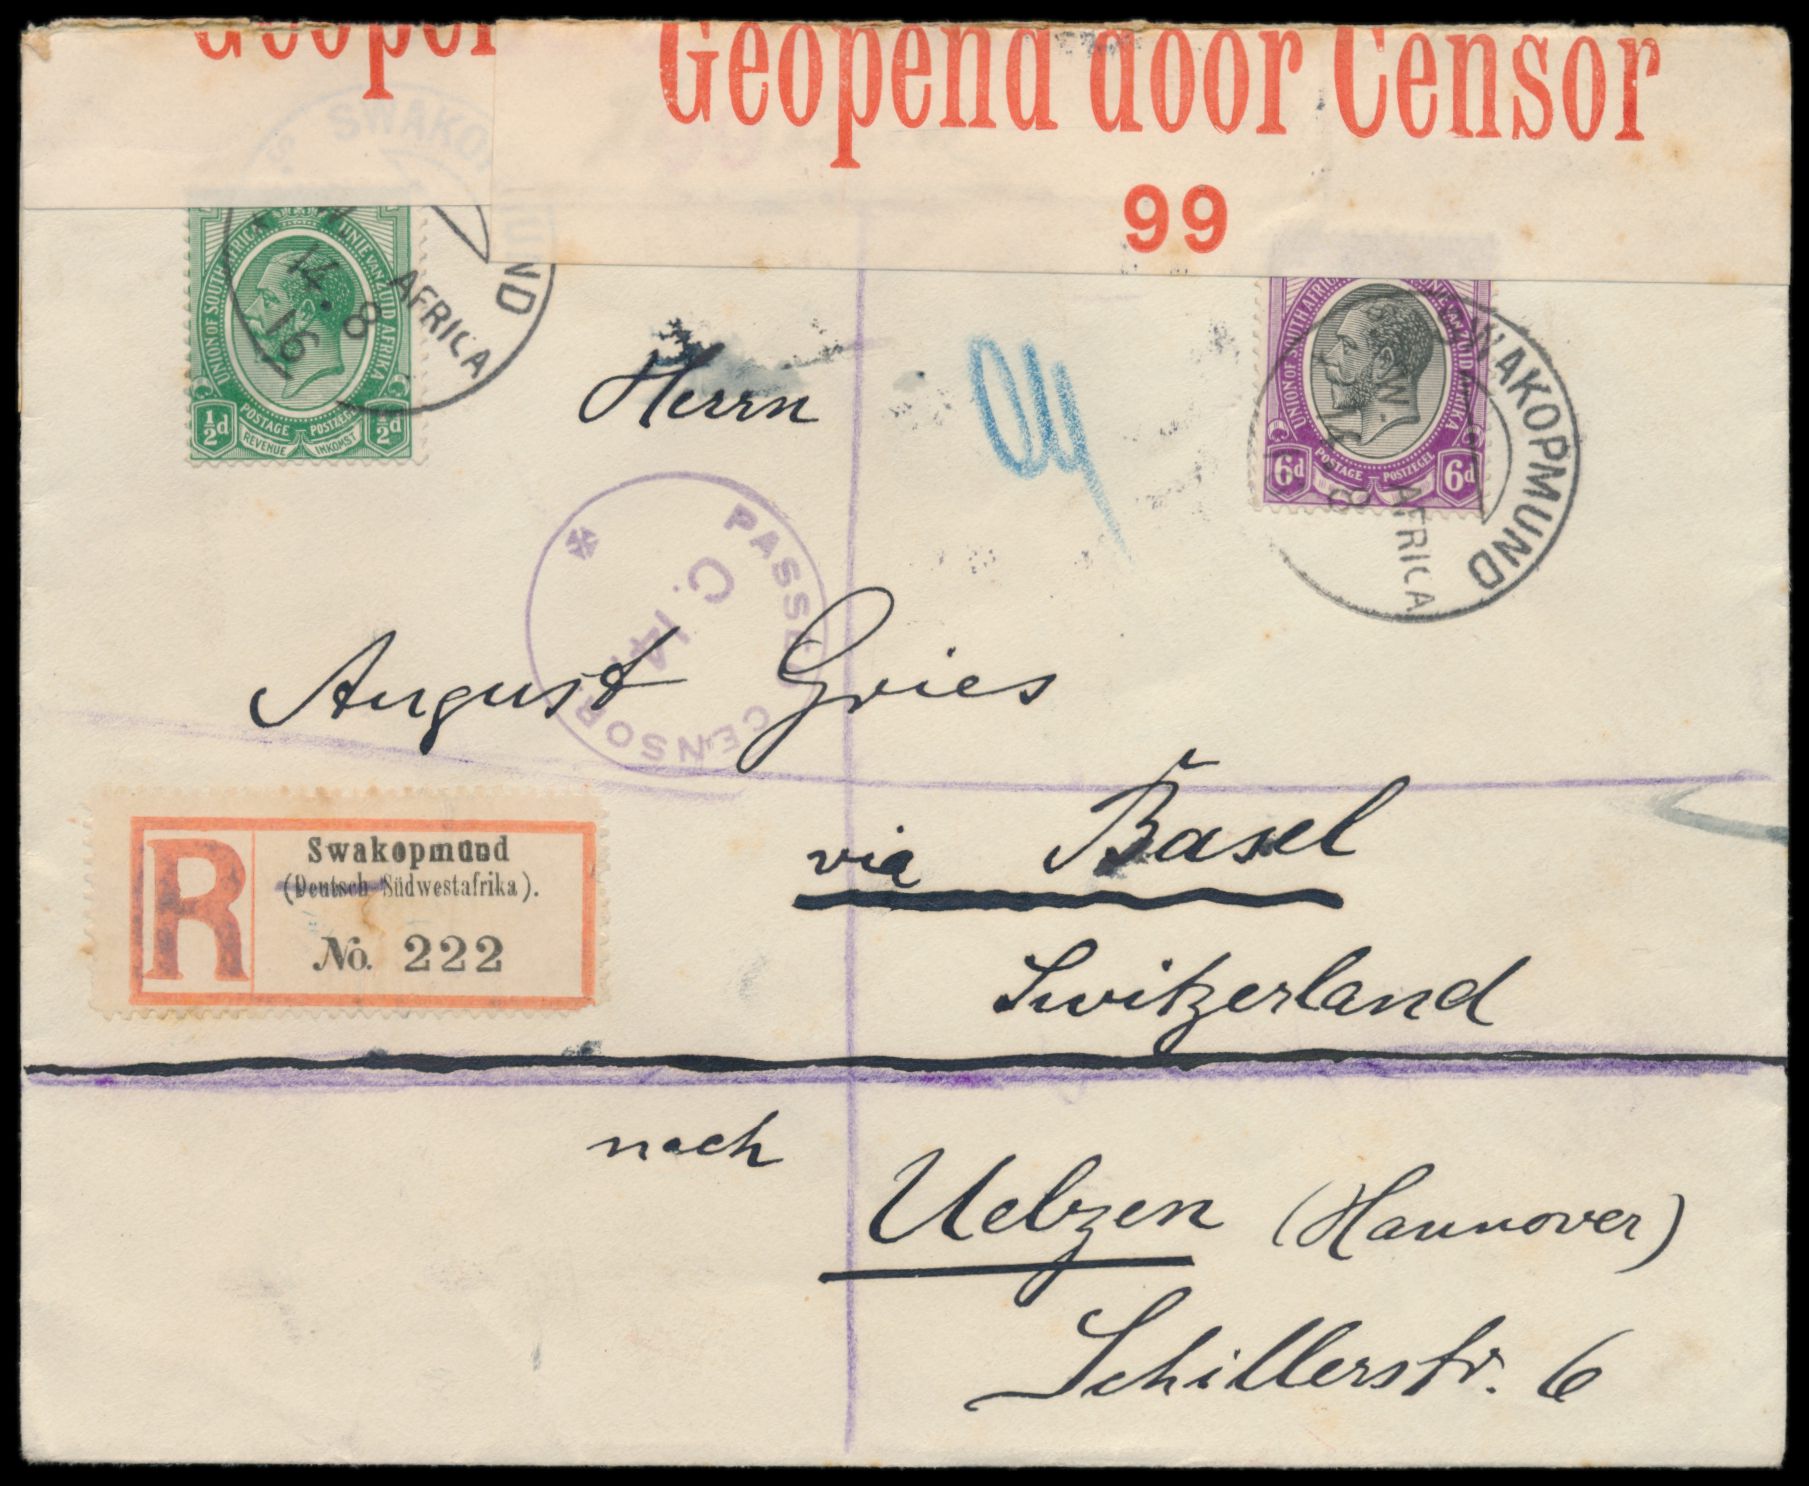 Geopen
Geopend door Censor
99
SWAKOPMUND
S.W. AFRICA
14.8
16
UNION OF SOUTH AFRICA
UNIE VAN ZUID AFRIKA
½d POSTAGE POSTZEGEL ½d
REVENUE INKOMST
SWAKOPMUND
S.W. AFRICA
14.8
UNION OF SOUTH AFRICA
UNIE VAN ZUID AFRIKA
6d POSTAGE POSTZEGEL 6d
Herrn
PASSED CENSOR
C.14.
August Gries
via Basel
Switzerland
R
Swakopmund
(Deutsch-Südwestafrika).
No. 222
nach
Uelzen (Hannover)
Schillerstr. 6